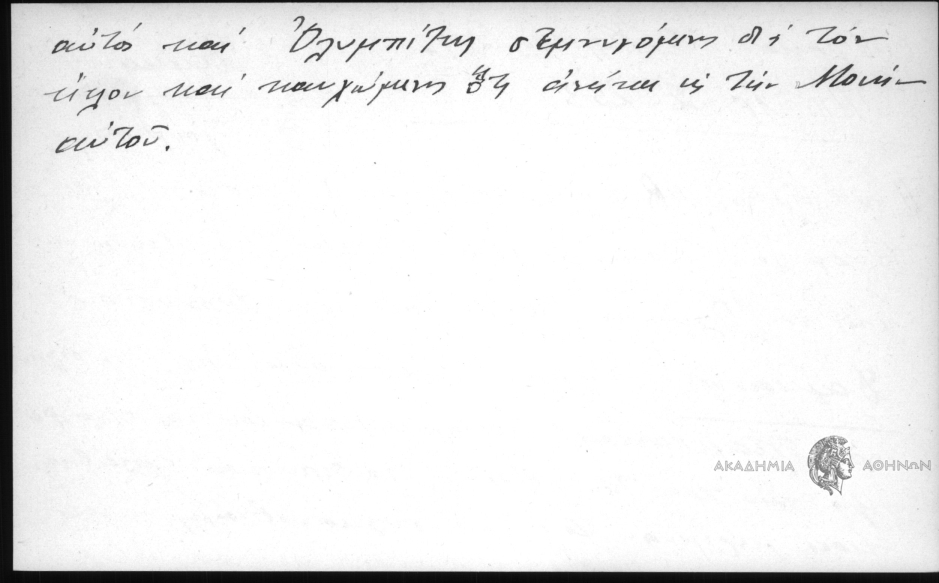 αὐτός καί Ὀλυμπίτης σεμνυνόμενος διά τόν
τίτλον καί καυχώμενος ὅτι ἀνήκει εἰς τήν Μονήν
αὐτοῦ.
ΑΚΑΔΗΜΙΑ ΑΘΗΝΩΝ